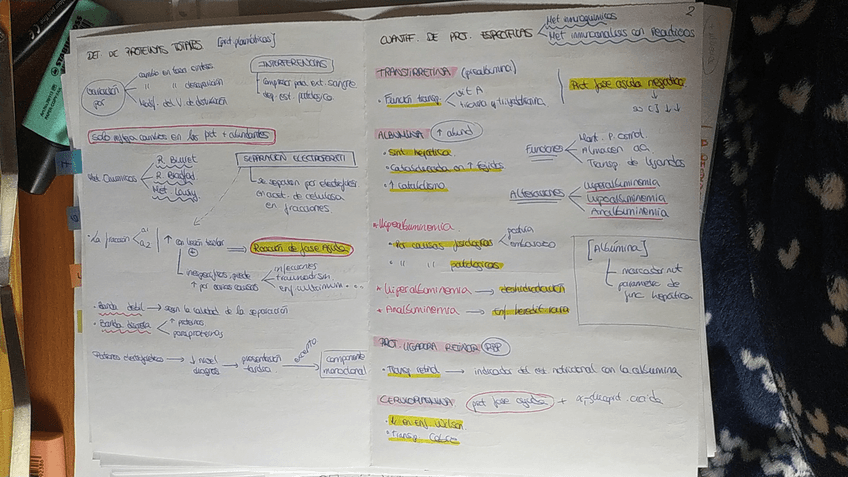 2
DET. DE PROTEÍNAS TOTALES [prot. plasmáticas]
Variación por
cambio en tasa síntesis
" " desaparición
Modif. del V. de distribución
INTERFERENCIAS
compresor para ext. sangre
disp. est. patológico
Solo refleja cambios en las prot + abundantes
Met Químicos
R. Biuret
R. Bradford
Met Lowry
SEPARACIÓN ELECTROFORÉTI
Se separan por electroforesis
en acet. de celulosa
en fracciones
La fracción α1 α2
↑ con lesión tisular
Reacción de fase Aguda
inespecífica, puede
↑ por varias causas
infecciones
traumatism.
enf. autoinmun...
Banda débil → según la calidad de la separación
Banda discreta
↑ proteínas
paraproteínas
Patrones electroforéticos → ↓ nivel diagnós. → presentación tardía
excepto
componente monoclonal
CUANTIF. DE PROT. ESPECÍFICAS
Met inmunoquímicos
Met inmunoanálisis con reactivos
TRANSTIRRETINA (prealbúmina)
Función transp.
vit A
tiroxina y triyodotironina
Prot fase aguda negativa
su C] ↓↓
ALBÚMINA ↑ abund
Sint hepática
Catabolizada en ↑ tejidos
↑ catabolismo
Funciones
Mant. P. osmót.
Almacén aa
Transp. de ligandos
Alteraciones
Hiperalbuminemia
Hipoalbuminemia
Analbuminemia
Hipoalbuminemia
Por causas fisiológicas
postura
embarazo
" " patológicas
Hiperalbuminemia → deshidratación
Analbuminemia → Enf heredit rara
[Albúmina]
marcador nut
parámetro de
func. hepática
PROT. LIGADORA RETINOL RBP
Transp retinol → indicador del est. nutricional con la albúmina
CERULOPLASMINA prot fase aguda + α2-glucoprot. ácida
↓ en enf. Wilson
Transp Cobre